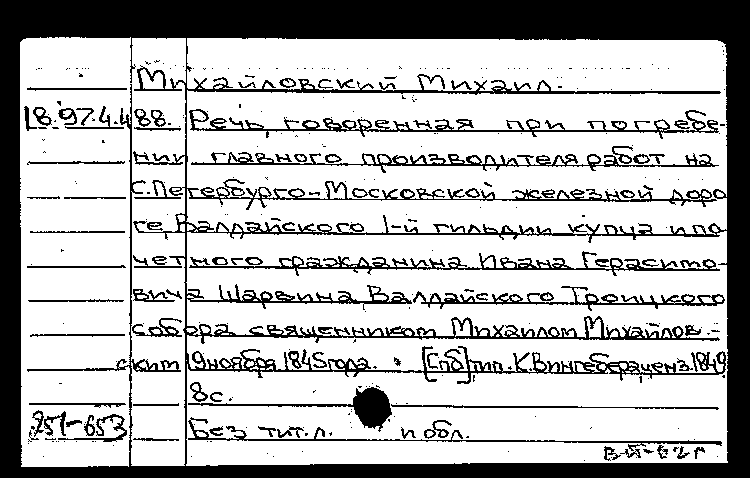 Михайловский, Михаил.
18.97.4.488. Речь, говоренная при погребе-
нии главного производителя работ на
С.Петербурго-Московской железной доро
ге, Валдайского 1-й гильдии купца и по
четного гражданина Ивана Герасимо-
вича Шарвина, Валдайского Троицкого
собора священником Михаилом Михайлов-
ским 19 ноября 1845 года. [Спб] тип. К. Вингебера, ценз. 1849
8с.
251-653 Без тит.л. и обл.